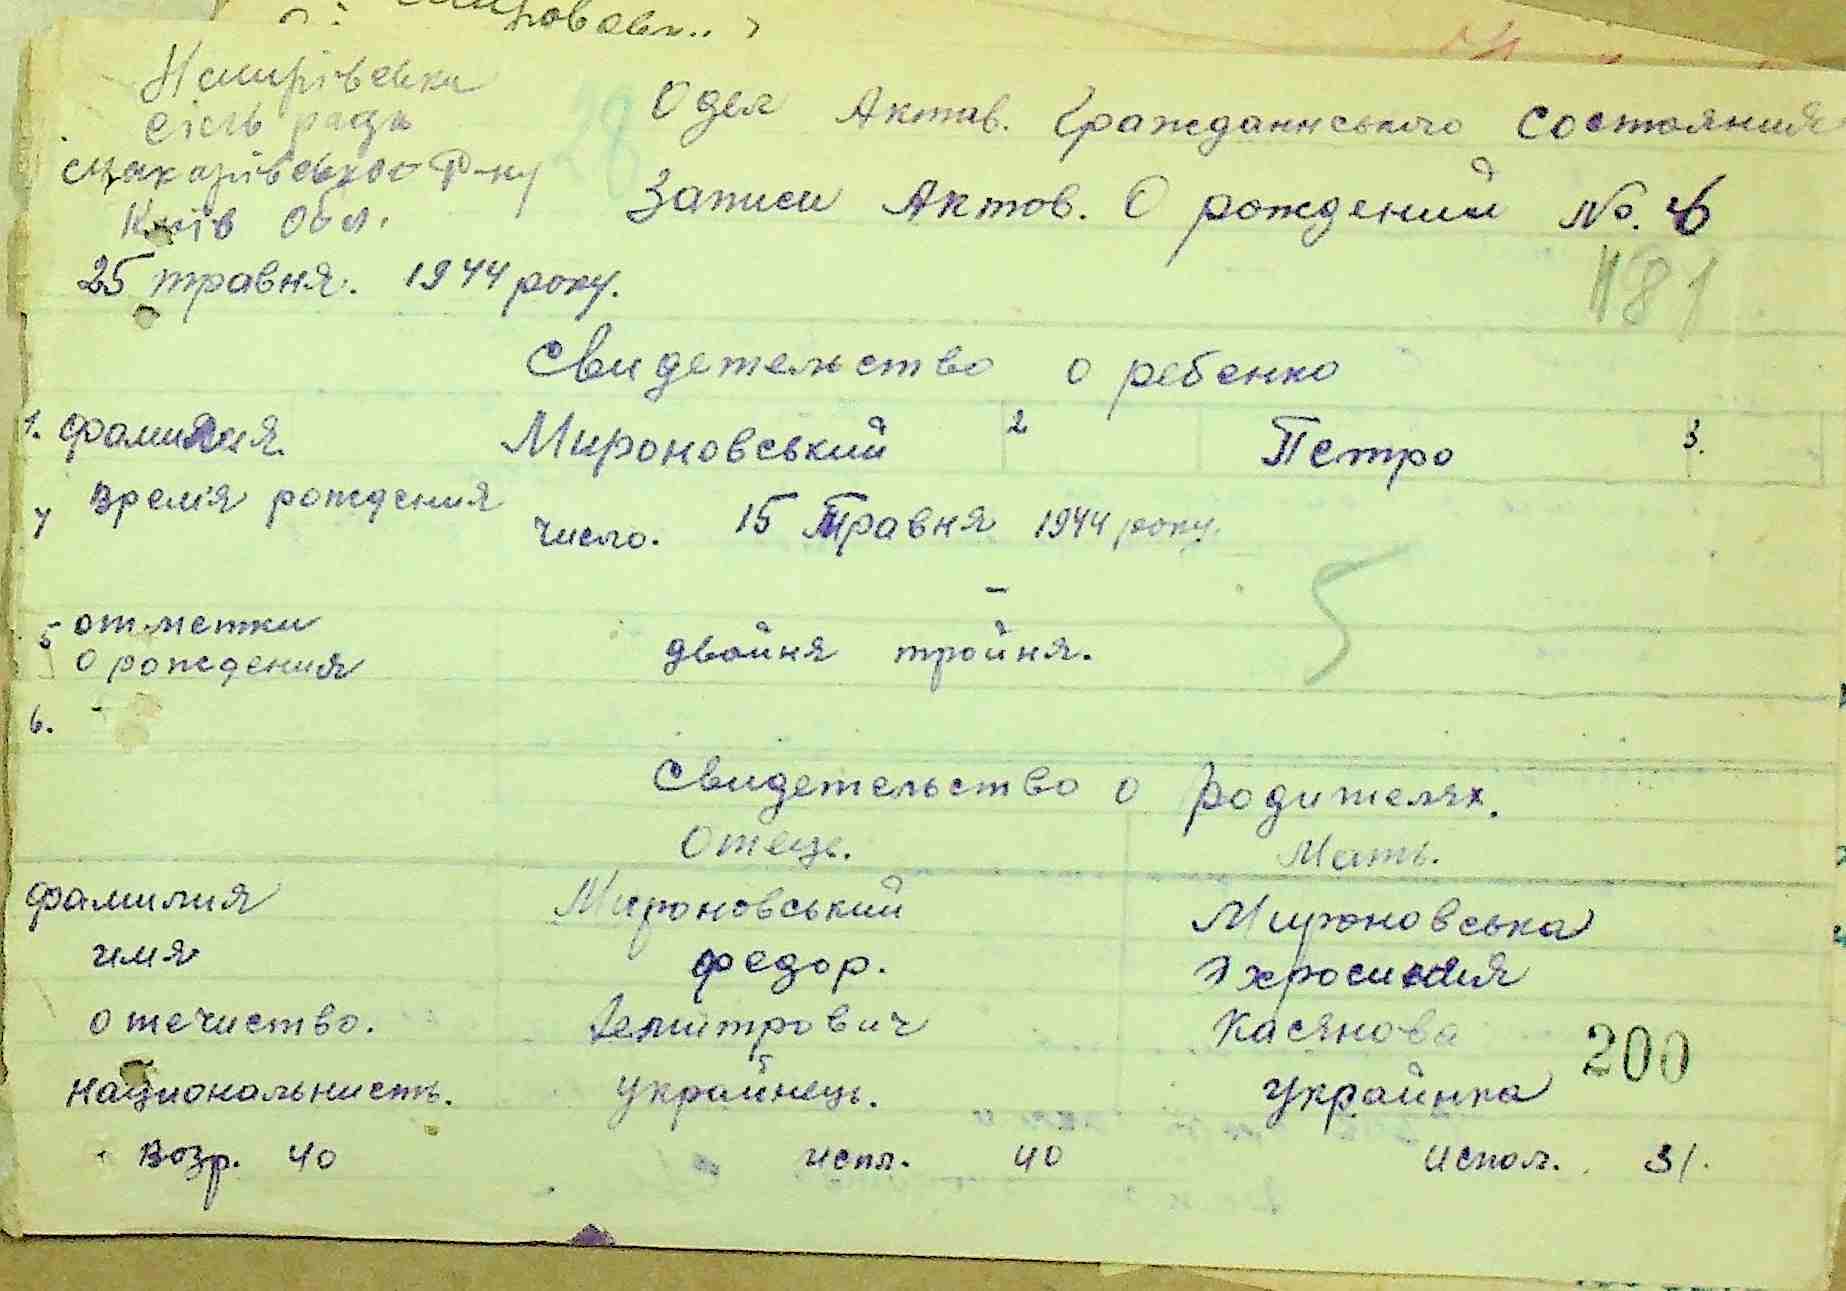 сіль рада
Макарівського Р-ну
Київ Обл.
25 травня. 1944 року.
28
Одел Актав. Гражданнського Состояния
Записи Актов. О рождений No. 6
181
Свидетельство о ребенко
1. фамилия. Мироновський 2 Петро 3.
4 Время рождения число. 15 Травня 1944 року.
5 отметки о рождения двойня тройня.
5
6. -
Свидетельство о Родителях.
Отець. Мать.
фамилия Мироновський Мироновська
имя федор. 
отечиство. Демитрович Касянова
200
национальнисть. Украйнець. Украйнка
Возр. 40 испл. 40 испол. 31.